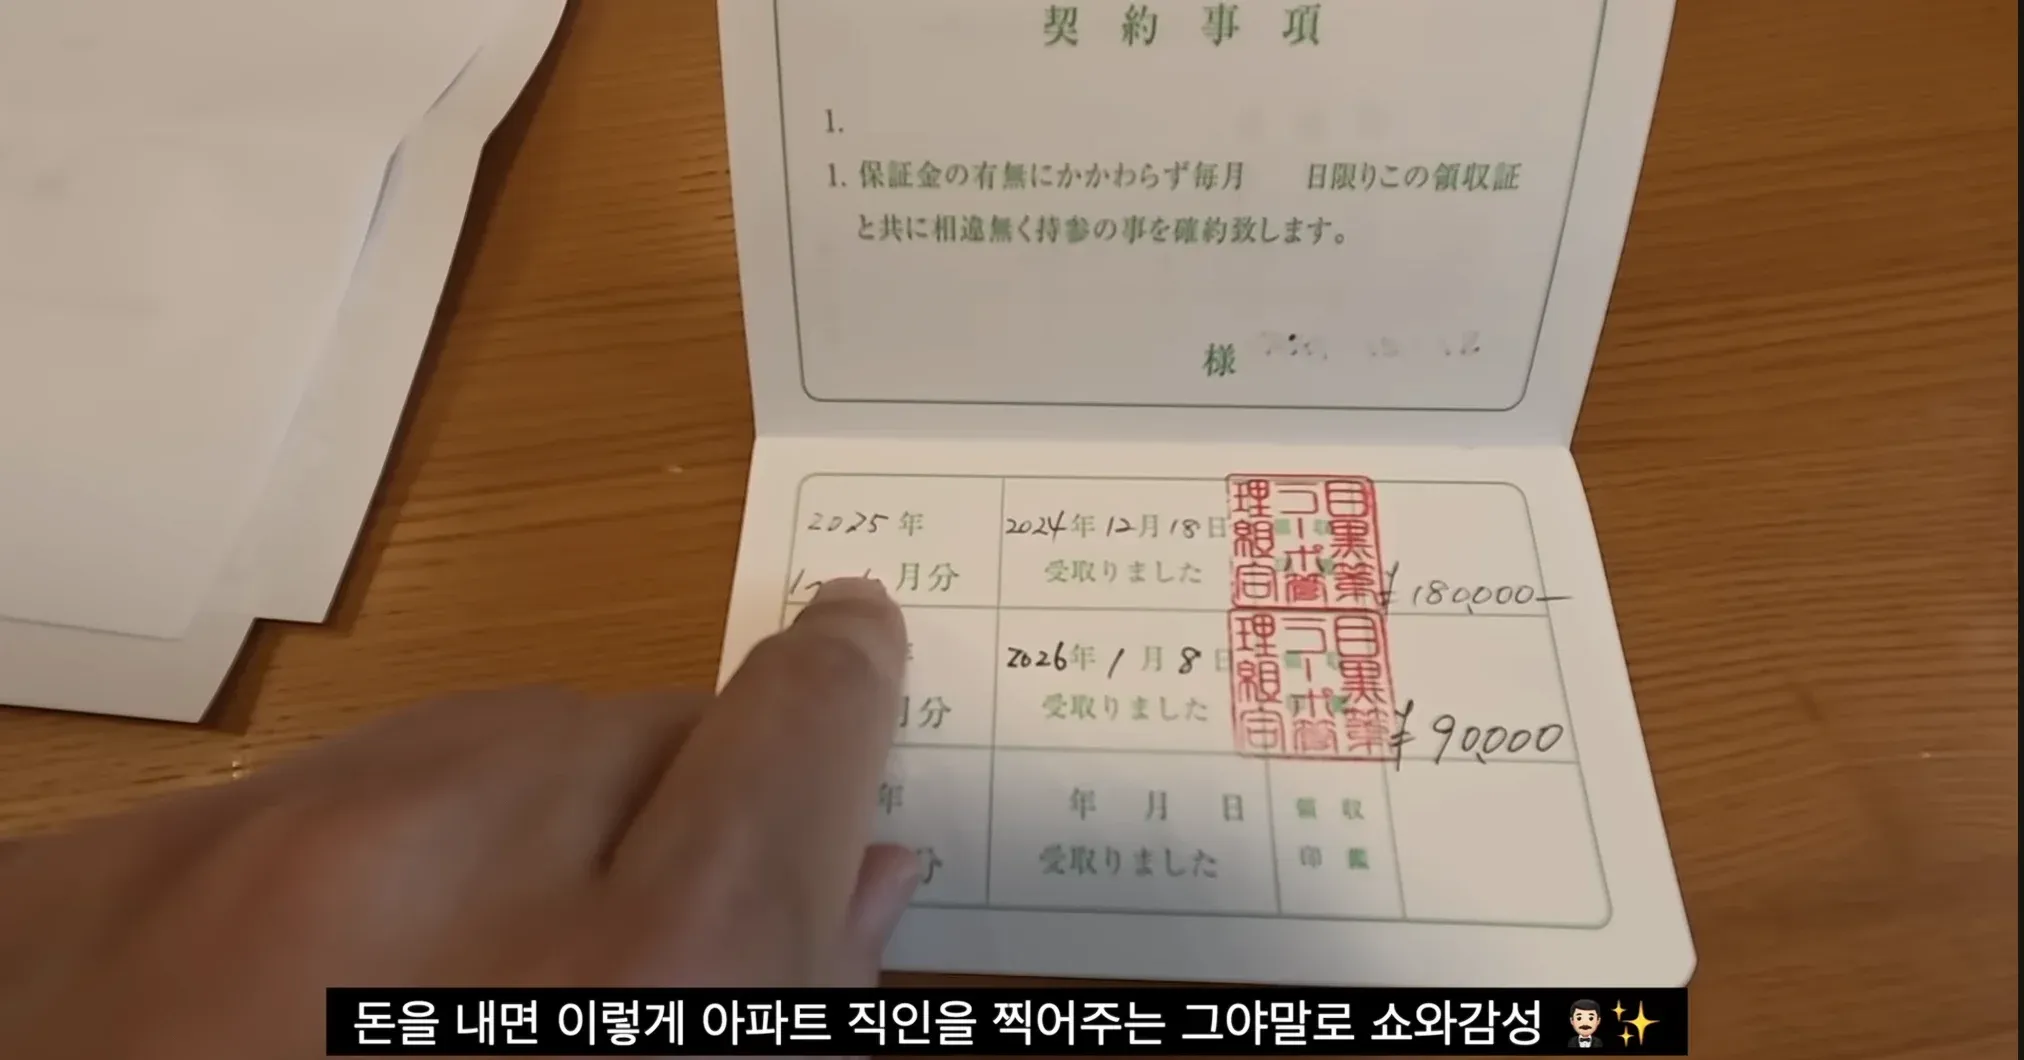 契約事項
1.
1. 保証金の有無にかかわらず毎月 日限りこの領収証
と共に相違無く持参の事を確約致します。
様
2025年
月分
2024年12月18日
受取りました
目黒第
一コーポ管
理組合
¥180,000—
月分
2026年1月8日
受取りました
目黒第
一コーポ管
理組合
¥90,000
年
分
年 月 日
受取りました
領収
印鑑
돈을 내면 이렇게 아파트 직인을 찍어주는 그야말로 쇼와감성 🤵🏻✨